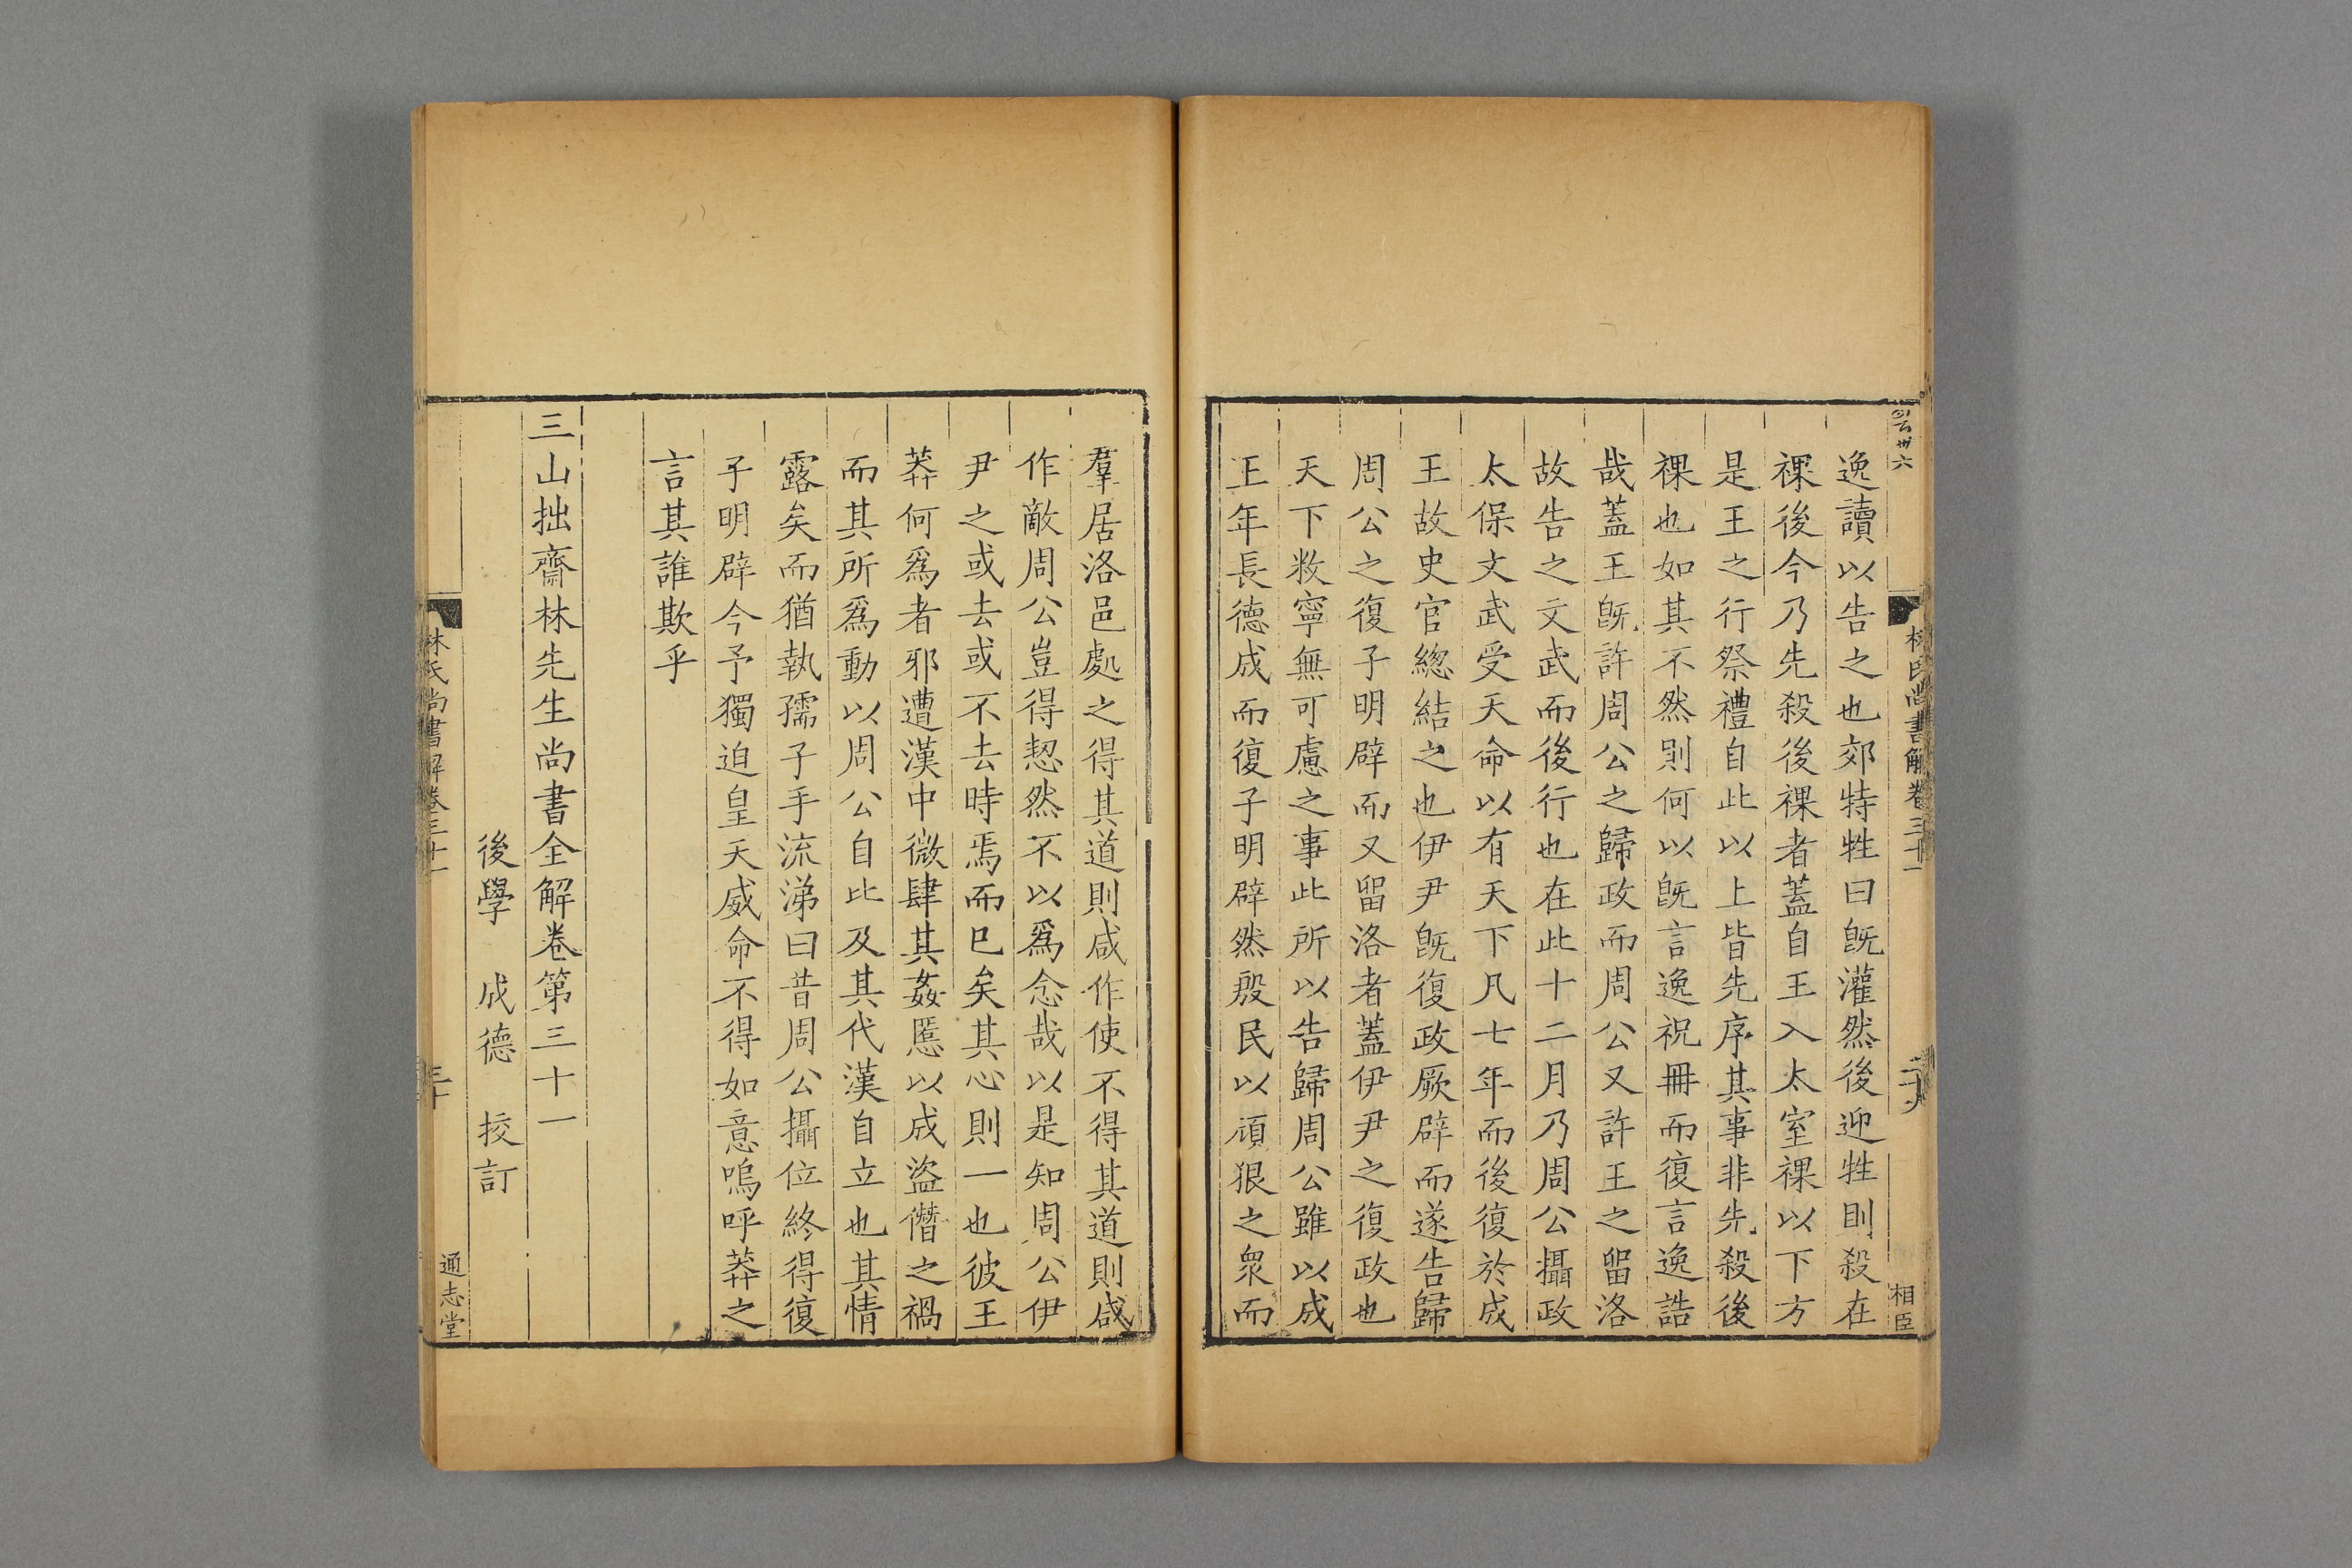 林氏尚書解卷三十一
相臣
逸讀以告之也郊特牲曰旣灌然後迎牲則殺在
祼後今乃先殺後祼者蓋自王入太室祼以下方
是王之行祭禮自此以上皆先序其事非先殺後
祼也如其不然則何以旣言逸祝冊而復言逸誥
哉蓋王旣許周公之歸政而周公又許王之留洛
故告之文武而後行也在此十二月乃周公攝政
太保文武受天命以有天下凡七年而後復於成
王故史官總結之也伊尹旣復政厥辟而遂告歸
周公之復子明辟而又留洛者蓋伊尹之復政也
天下敉寧無可慮之事此所以告歸周公雖以成
王年長德成而復子明辟然殷民以頑狠之衆而
羣居洛邑處之得其道則咸作使不得其道則咸
作敵周公豈得恝然不以爲念哉以是知周公伊
尹之或去或不去時焉而已矣其心則一也彼王
莽何爲者邪遭漢中微肆其姦慝以成盜僭之禍
而其所爲動以周公自比及其代漢自立也其情
露矣而猶執孺子手流涕曰昔周公攝位終得復
子明辟今予獨迫皇天威命不得如意嗚呼莽之
言其誰欺乎
三山拙齋林先生尚書全解卷第三十一
後學 成德 挍訂
林氏尚書解卷三十一
三十
通志堂